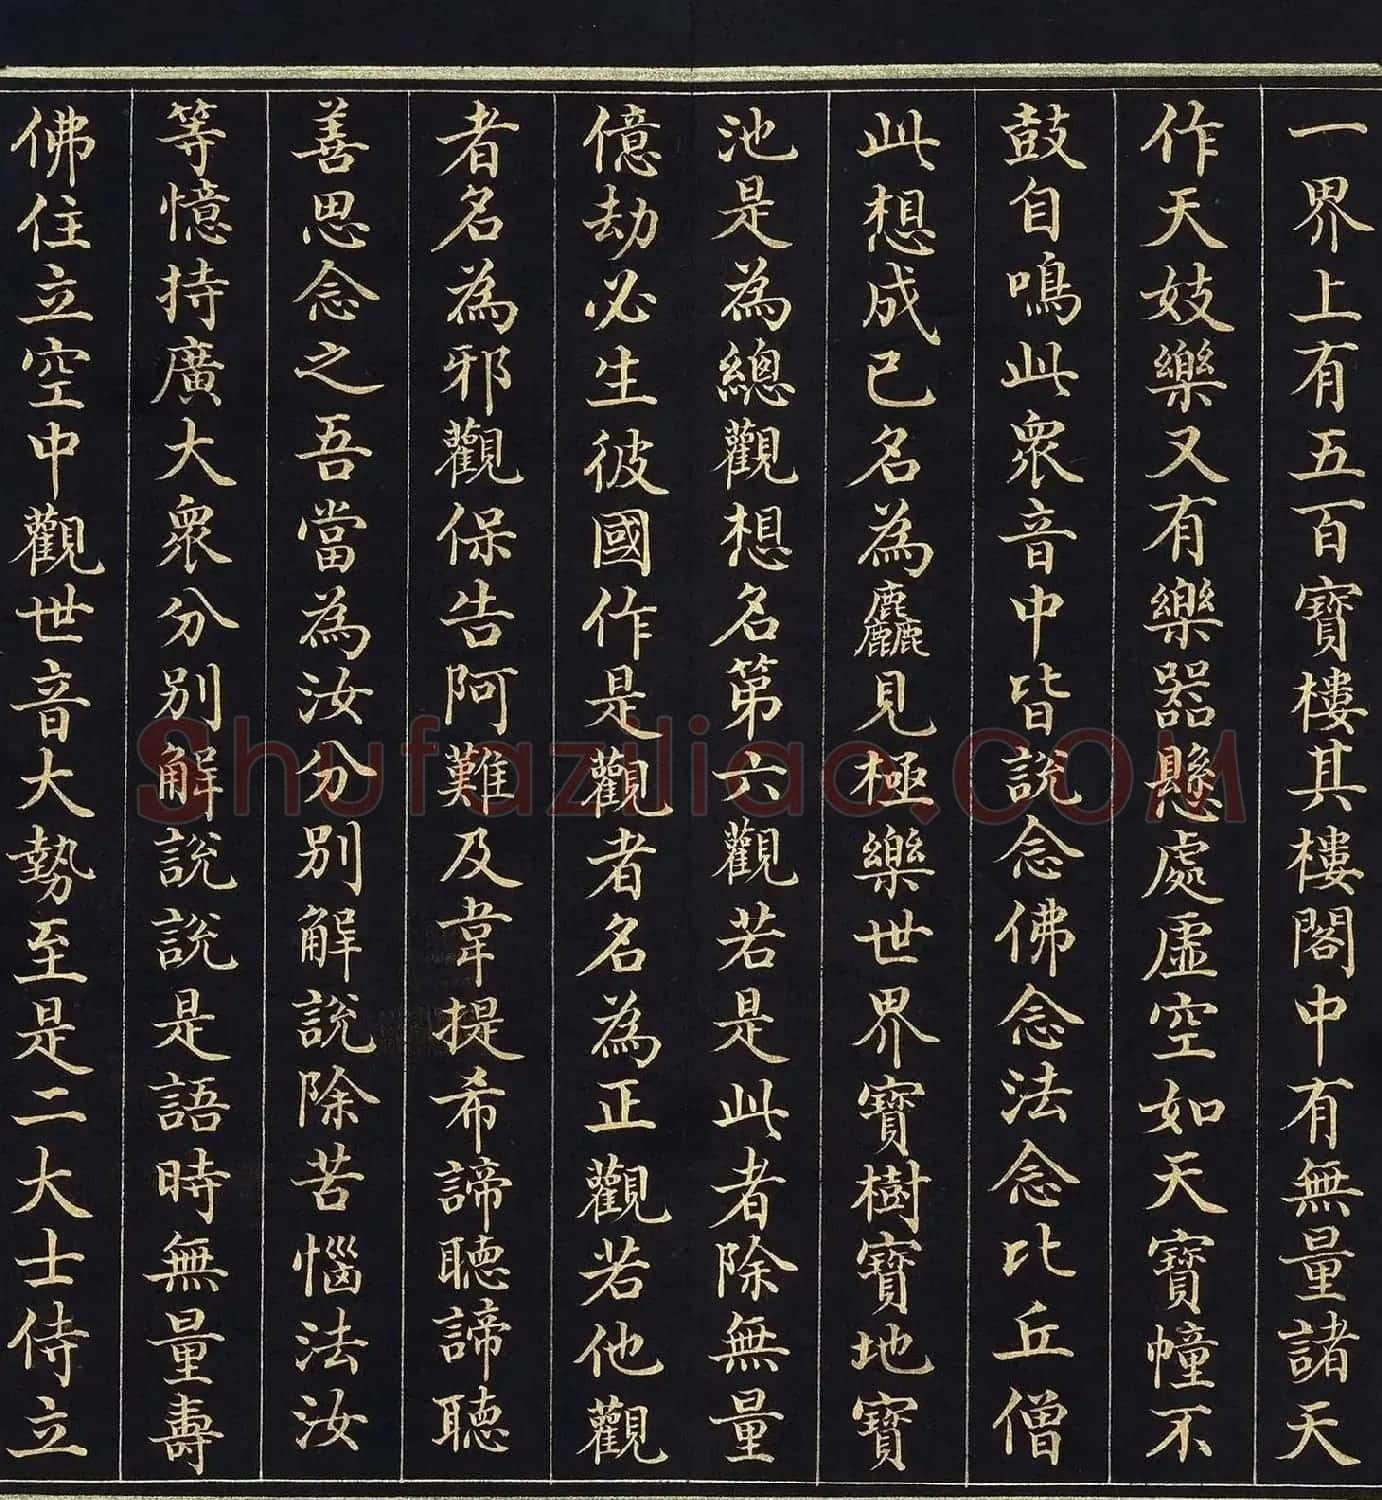 一界上有五百寶樓其樓閣中有無量諸天
作天妓樂又有樂器懸處虛空如天寶幢不
鼓自鳴此衆音中皆說念佛念法念比丘僧
此想成已名為麤見極樂世界寶樹寶地寶
池是為總觀想名第六觀若是此者除無量
億劫必生彼國作是觀者名為正觀若他觀
者名為邪觀保告阿難及韋提希諦聽諦聽
善思念之吾當為汝分別解說除苦惱法汝
等憶持廣大衆分別解說說是語時無量壽
佛住立空中觀世音大勢至是二大士侍立
Shufaziliao.COM